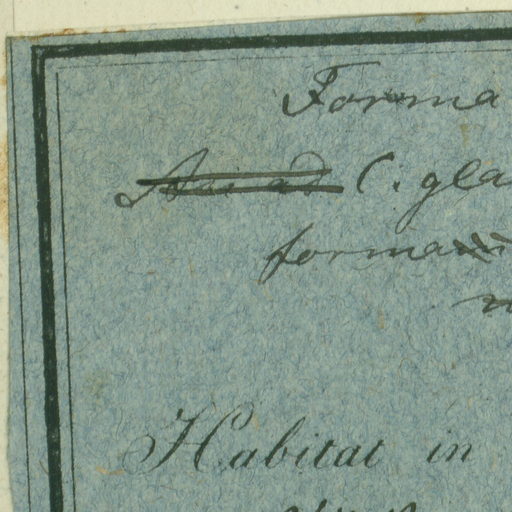 Forma
C. gla
forma
Habitat in